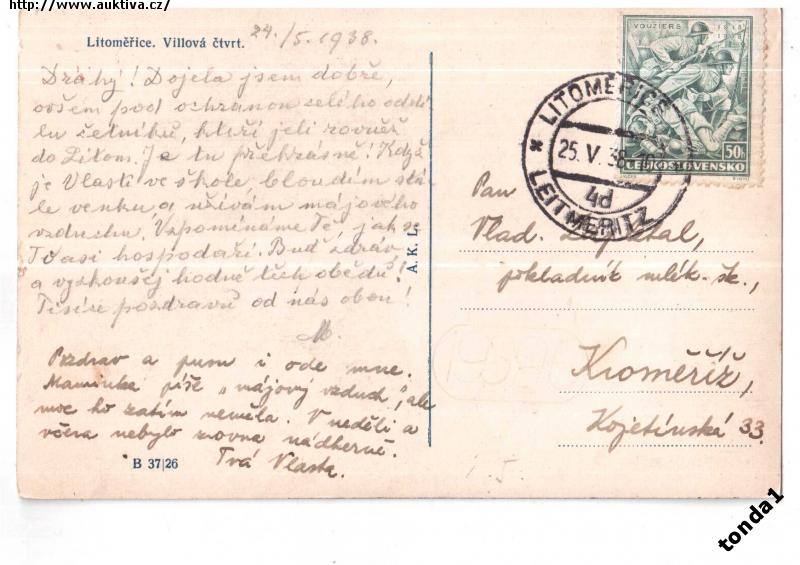 http://www.auktiva.cz/
Litoměřice. Villová čtvrt.
24./5.1938.
Drahý! Dojela jsem dobře,
ovšem pod ochranou celého oddí-
lu četníků, kteří jeli rovněž
do Litom. Je tu překrásně! Když
je Vlasti ve škole, bloudím stá-
le venku a užívám májového
vzduchu. Vzpomínáme Tě, jak se
Ti asi hospodaří. Buď zdráv
a vyzkoušej hodně těch obědů!
Tisíce pozdravů od nás obou!
M.
Pozdrav a pusu i ode mne.
Maminka píše "májový vzduch", ale
moc ho zatím neměla. V neděli a
včera nebylo zrovna nádherně.
Tvá Vlasta.
B 37|26
A. K. L.
VOUZIERS
1918
1938
50h
ČESKOSLOVENSKO
LITOMĚŘICE
25. V. 38
4d
LEITMERITZ
Pan
Vlad.
pokladník mlék. šk.,
Kroměříž,
Kojetínská 33.
tonda1